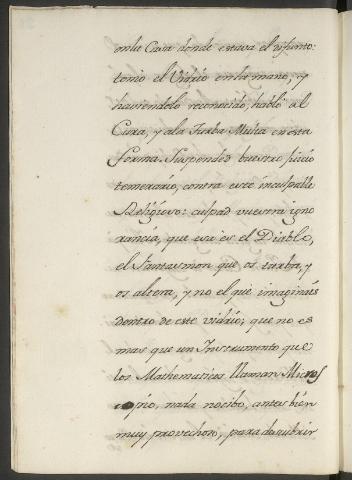 en la Casa donde estava el difunto:
tomó el Vidrio en la mano, y
haviendolo reconocido, habló al
Cura, y a la Turba Multa en esta
forma. Suspended buestro juicio
temerario, contra este inculpable
Religioso: culpad vuestra igno
rancia, que esa es el Diablo,
el Fantasmon que os turba, y
os altera, y no el que imaginais
dentro de este vidrio; que no es
mas que un Instrumento que
los Mathematicos llaman Micros
copio, nada nocibo, antes bien
muy provechoso, para descubrir